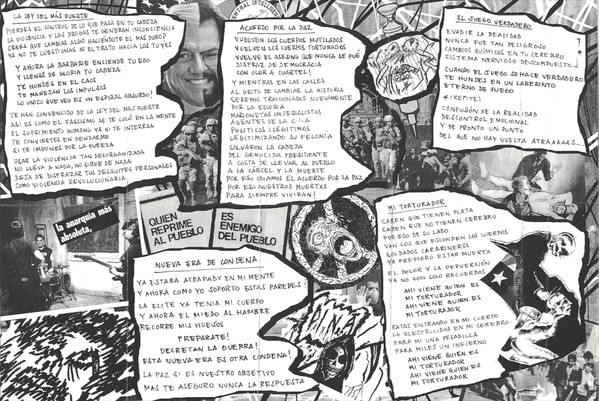 LA LEY DEL MÁS FUERTE
PIERDES EL CONTROL DE LO QUE PASA EN TU CABEZA
LA VIOLENCIA Y LAS DROGAS TE GENERAN INCONCIENCIA
CREES QUE CAMBIAS ALGO HACIÉNDOTE EL MÁS DURO?
YA NO TE CUESTIONAS NI EL TRATO HACIA LOS TUYXS
Y AHORA LA BARBARIE ENCIENDE TU EGO
Y LLENAS DE GLORIA TU CABEZA
TE HUNDES EN EL CAOS
TE MANEJAN LOS IMPULSOS
LO UNICO QUE VEO ES UN ESPIRAL ABSURDO!
TE HAN CONVENCIDO DE LA LEY DEL MAS FUERTE
ASI ES COMO EL FASCISMO SE TE COLO EN LA MENTE
EL SUFRIMIENTO HUMANO YA NI TE INTERESA
TE CONVIERTES EN GENDARME
SI TE IMPONES POR LA FUERZA
USAR LA VIOLENCIA TAN DESORGANIZADA
NO LLEVA A NADA, NO SIRVE DE NADA
DEJA DE DISFRAZAR TUS DESQUITES PERSONALES
COMO VIOLENCIA REVOLUCIONARIA.
ACUERDO POR LA PAZ
VUELVEN LOS CUERPOS MUTILADOS
VUELVEN LOS CUERPOS TORTURADOS
VUELVE EL ASESINO QUE NUNCA SE FUÉ
DISFRAZ DE DEMOCRACIA
CON OLOR A CUARTEL!
Y MIENTRAS EN LAS CALLES
AL GRITO DE CAMBIAR LA HISTORIA
SERIAMOS TRAICIONADXS NUEVAMENTE
POR LA ESCORIA
MARIONETAS IMPERIALISTAS
AGENTES DE LA C.I.A
POLITICOS ILEGITIMOS
LEGITIMIZANDO SU FELONIA
SALVARON LA CABEZA
DEL GENOCIDA PRESIDENTE
A COSTA DE LLEVAR AL PUEBLO
A LA CÁRCEL Y LA MUERTE
POR ESO ODIAMOS EL ACUERDO POR LA PAZ
POR ESO NUESTRXS MUERTXS
PARA SIEMPRE VIVIRAN!
EL JUEGO VERDADERO
EVADIR LA REALIDAD
NUNCA FUE TAN PELIGROSO
CAMBIOS QUÍMICOS EN TU CEREBRO
SISTEMA NERVIOSO DESCOMPUESTO
CUANDO EL JUEGO SE HACE VERDADERO
TE HUNDES EN UN LABERINTO
ETERNO DE FUEGO
(REPITE)
CONFUSIÓN DE LA REALIDAD
DESCONTROL EMOCIONAL
Y DE PRONTO UN PUNTO
DEL QUE NO HAY VUELTA ATRAAAAAS...
la anarquía más
absoluta,
QUIEN
REPRIME
AL PUEBLO
ES
ENEMIGO
DEL PUEBLO
NUEVA ERA DE CONDENA
YA ESTABA ATRAPADX EN MI MENTE
Y AHORA COMO YO SOPORTO ESTAS PAREDES!
LA ELITE YA TENIA MI CUERPO
Y AHORA EL MIEDO AL HAMBRE
RECORRE MIS HUESOS
PREPARATE!
DECRETAN LA GUERRA!
ESTA NUEVA ERA ES OTRA CONDENA!
LA PAZ SI ES NUESTRO OBJETIVO
MAS TE ASEGURO NUNCA LA RESPUESTA
MI TORTURADOR
SABEN QUE TIENEN PLATA
SABEN QUE NO TIENEN CEREBRO
POR ESO DE SU LADO
VAN LOS QUE ESCONDEN LOS CUERPOS
SOLDADOS CARABINEROS
YA PREFIERO ESTAR MUERTX
EL DOLOR Y LA PERVERSIÓN
YA NO SON SOLO RECUERDOS
AHI VIENE QUIEN ES
MI TORTURADOR
AHI VIENE QUIEN ES
MI TORTURADOR
RATAS ENTRANDO EN MI CUERPO
LA ELECTRICIDAD EN MI CEREBRO
PARA MI UNA PESADILLA
PARA MILES UN INFIERNO
AHI VIENE QUIEN ES
MI TORTURADOR
AHI VIENE QUIEN ES
MI TORTURADOR